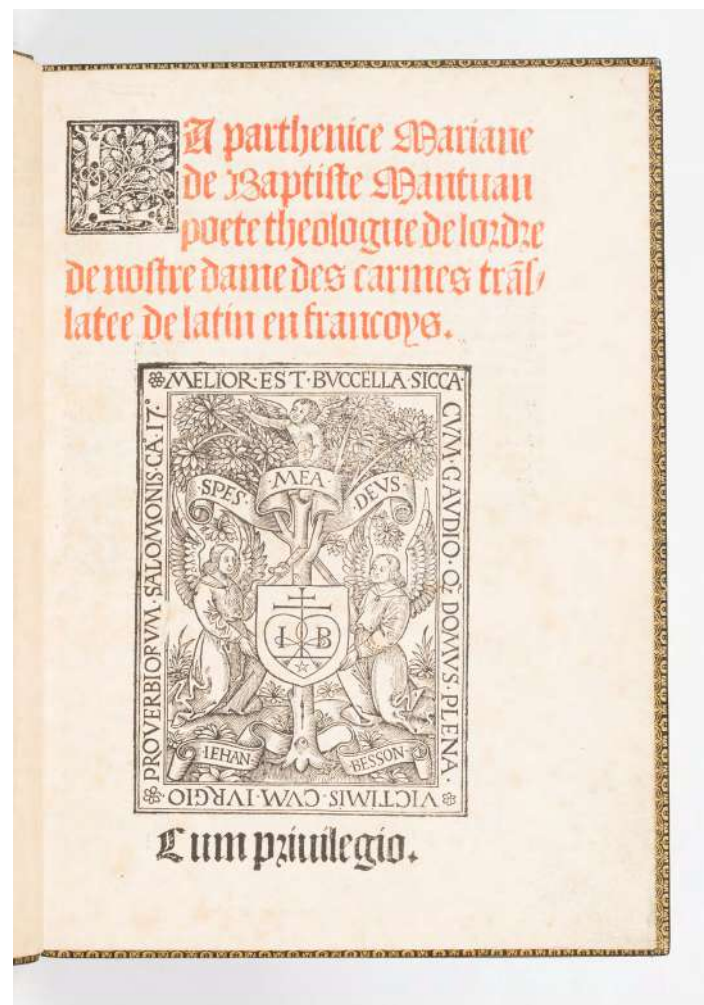 LA parthenice Mariane
de Baptiste Mantuan
poete theologue de lordre
de nostre dame des carmes trãs/
latee de latin en francoys.
❀MELIOR·EST·BVCCELLA·SICCA·
CVM·GAVDIO·Q̃·DOMVS·PLENA·
VICTIMIS·CVM·IVRGIO·
PROVERBIORVM·SALOMONIS·CA·17·
SPES· ·MEA· DEVS·
I B
·IEHAN·
BESSON·
Cum priuilegio.